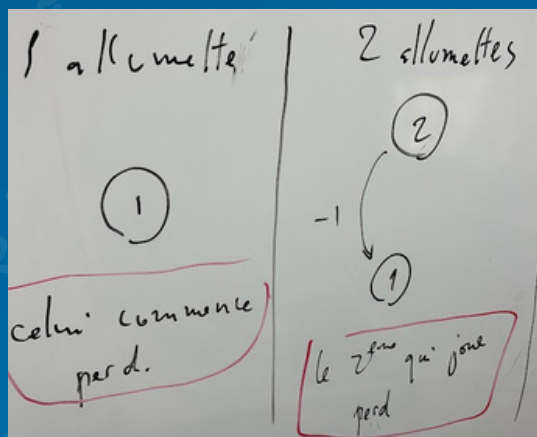 1 allumette
1
celui commence
perd.
2 allumettes
2
-1
1
le 2ème qui joue
perd